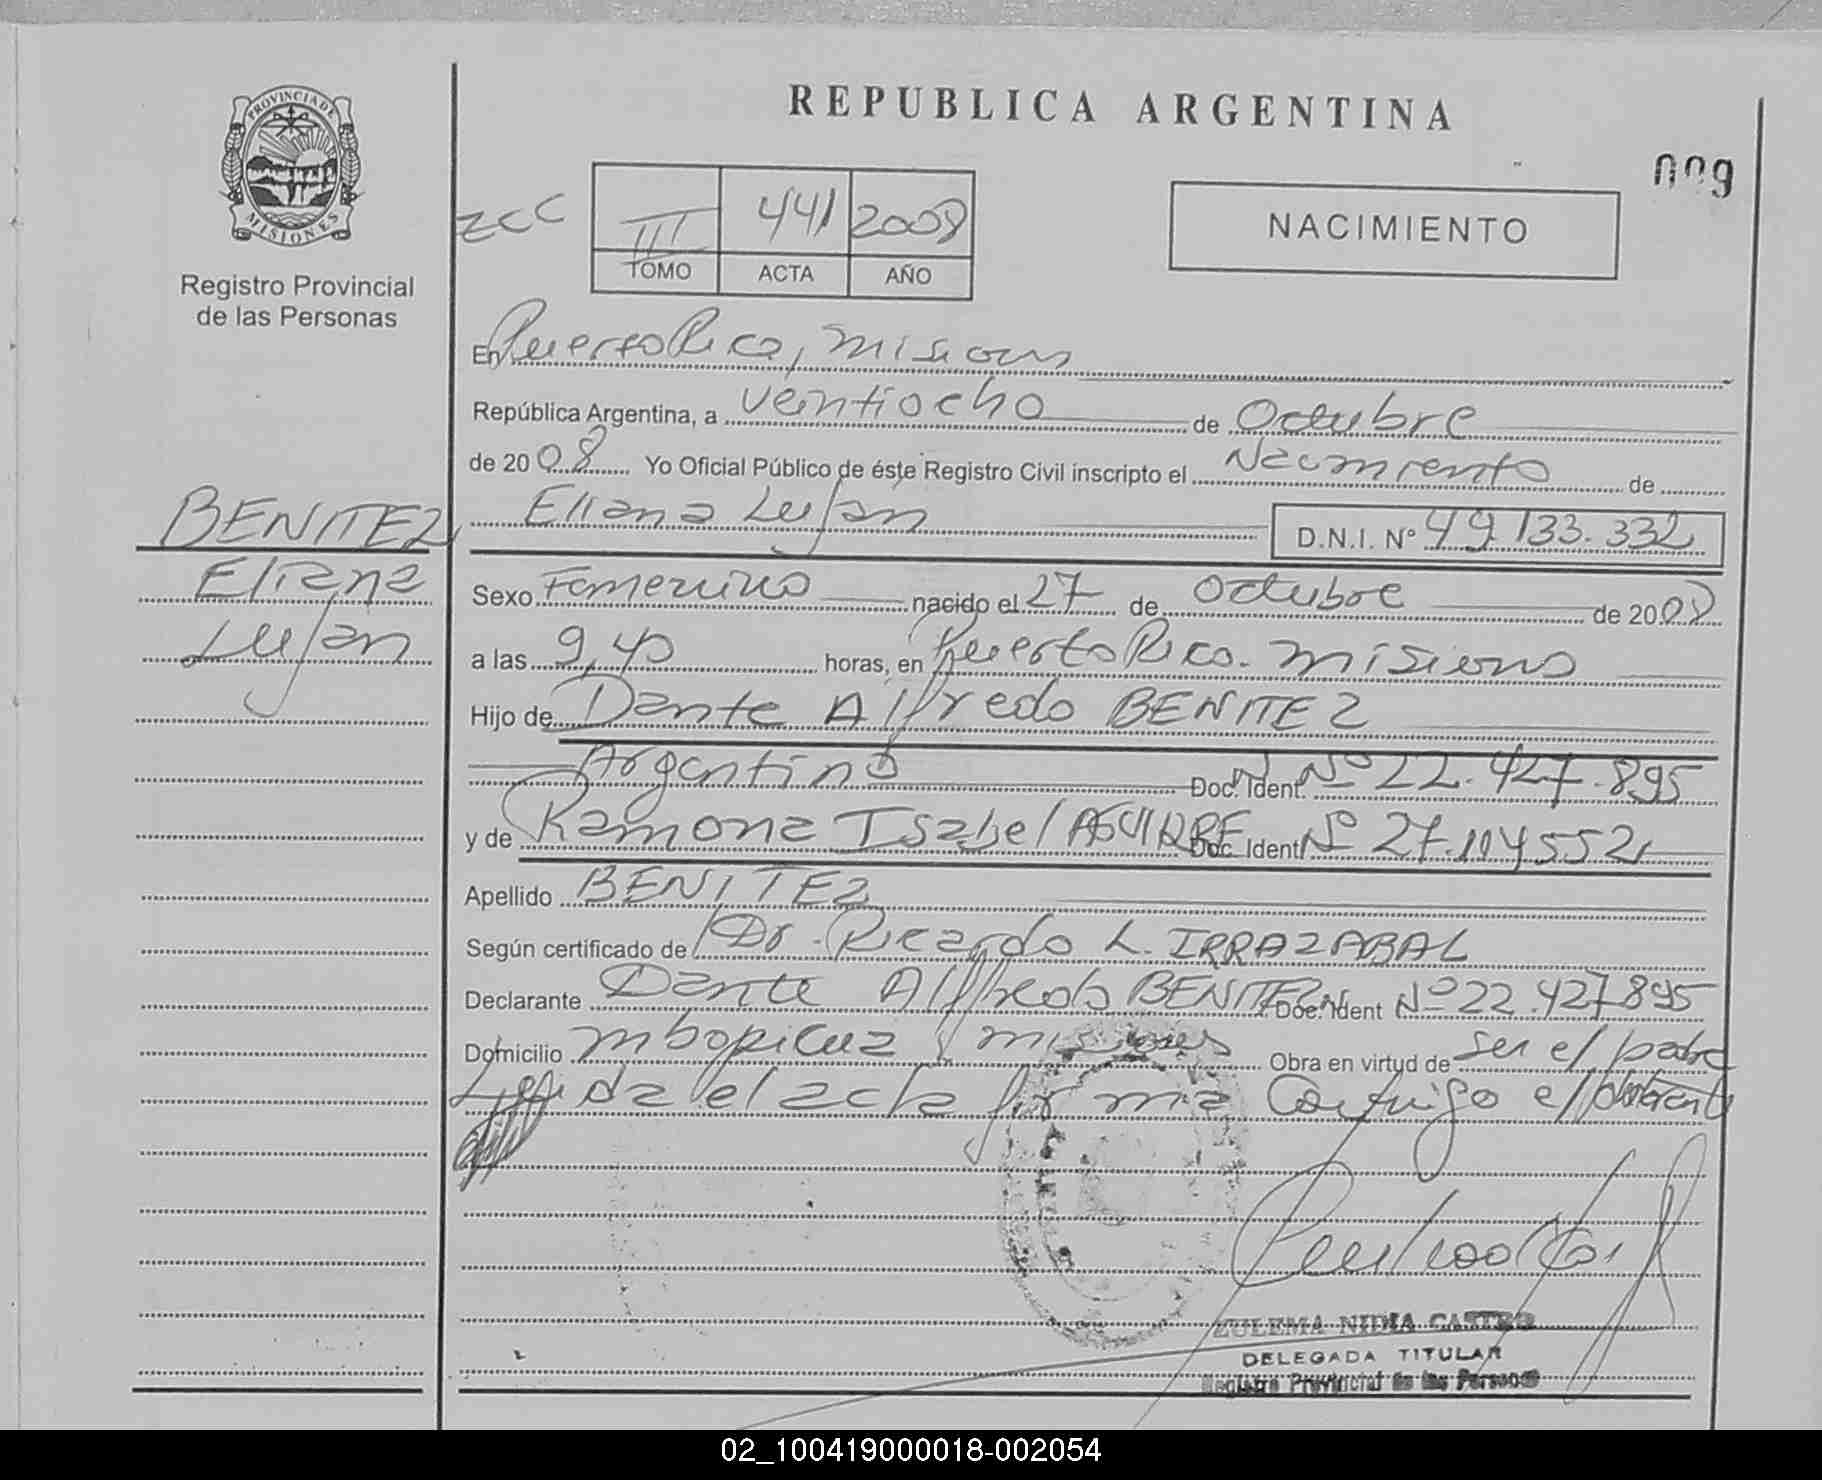 REPUBLICA ARGENTINA
009
PROVINCIA DE
MISIONES
Registro Provincial
de las Personas
ZCC
III 441 2008
TOMO ACTA AÑO
NACIMIENTO
En Puerto Rico, Misiones
República Argentina, a veintiocho de Octubre
de 2008 Yo Oficial Público de éste Registro Civil inscripto el Nacimiento de
Eliana Luján D.N.I. Nº 49.133.332
BENITEZ
Eliana
Luján
Sexo Femenino nacido el 27 de Octubre de 2008
a las 9,40 horas, en Puerto Rico. Misiones
Hijo de Dante Alfredo BENITEZ
Argentino Doc. Ident. Nº 22.427.895
y de Ramona Isabel AGUIRRE Doc. Ident Nº 27.114552
Apellido BENITEZ
Según certificado de Dr. Ricardo L. IRRAZABAL
Declarante Dante Alfredo BENITEZ Doc. Ident Nº 22.427895
Domicilio Mbopicua Misiones Obra en virtud de ser el padre
Leida el acta firma conmigo el declarante
ZULEMA NIDIA CASTRO
DELEGADA TITULAR
Registro Provincial de las Personas
02_100419000018-002054